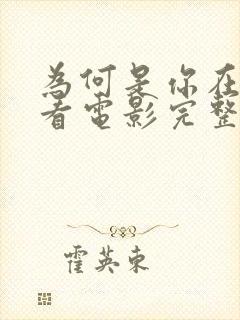 為何是你在
看電影完整
霍英東